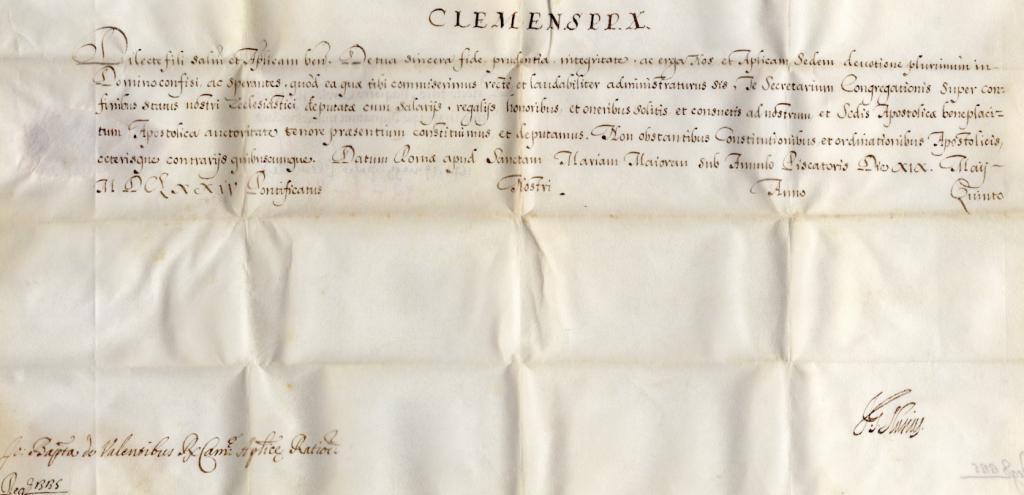 CLEMENS PP. X.
Dilecte fili salutẽ et Aplicam ben. De tua sincera fide, prudentia, integritate, ac erga Nos et Aplicam Sedem devotione plurimum in
Domino confisi, ac sperantes, quod ea quæ tibi commiserimus recte et laudabiliter administraturus sis, Te Secretarium Congregationis super con-
finibus status nostri Ecclesiastici deputatæ cum salarijs, regalijs honoribus, et oneribus solitis et consuetis ad nostrum, et Sedis Apostolicæ beneplaci-
tum Apostolica auctoritate tenore præsentium constituimus et deputamus. Non obstantibus Constitutionibus et ordinationibus Apostolicis,
ceterisque contrarijs quibuscumque. Datum Romæ apud Sanctam Mariam Maiorem sub Annulo Piscatoris Die XIX. Maij
M DCLXXIV Pontificatus Nostri Anno Quinto
Jo: Bapta de Valentibus